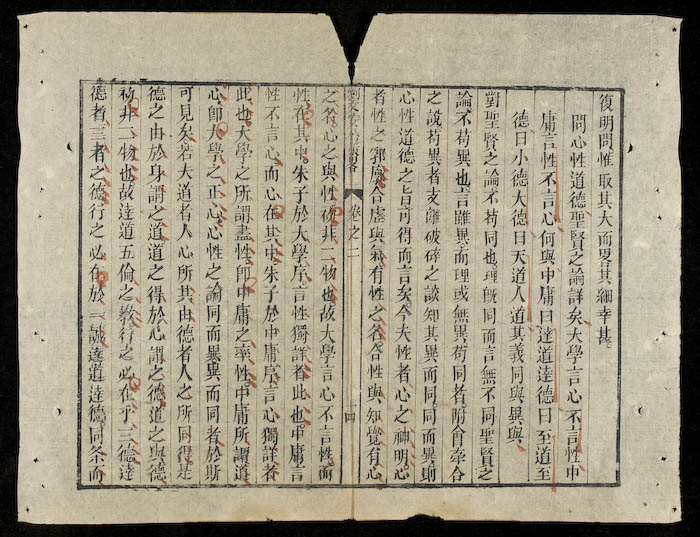 復明問惟取其大而畧其細幸甚
問心性道德聖賢之論詳矣大學言心不言性中
庸言性不言心何與中庸曰達道達德曰至道至
德曰小德大德曰天道人道其義同與異與
對聖賢之論不苟同也理旣同而言無不同聖賢之
論不苟異也言雖異而理或無異苟同者附會牽合
之說苟異者支離破碎之談知其異而同同而異則
心性道德之旨可得而言矣今夫性者心之神明心
者性之郛廓合虛與氣有性之名合性與知覺有心
卷之二 十四
之名心之與性初非二物也故大學言心不言性而
性在其中朱子於大學序言性獨詳者此也中庸言
性不言心而心在其中朱子於中庸序言心獨詳者
此也大學之所謂盡性卽中庸之率性中庸所謂道
心卽大學之正心心性之論同而異異而同者於斯
可見矣若夫道者人心所共由德者人之所同得是
德之由於身謂之道道之得於心謂之德道之與德
初非二物也故達道五倫之教行之必在乎三德達
德者三者之德行之必在於一誠達道達德同条而